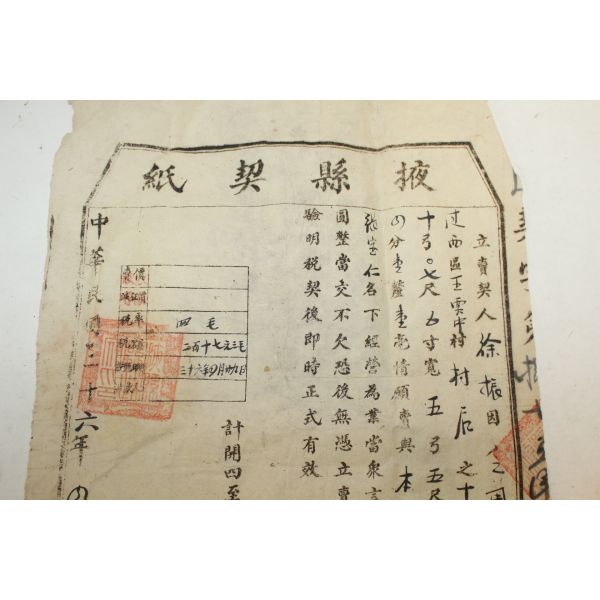 掖縣契紙
立賣契人徐振因
西區王賈村村后之十
十弓〇七尺五寸寬五弓五尺
四分壹釐壹毫情願賣與本
張宝仁名下經營為業當眾言
圓整當交不欠恐後無憑立賣
驗明稅契後即時正式有效
計開四至
四毛
二百十七元三毛
三十六年四月廿九日
中華民國三十六年